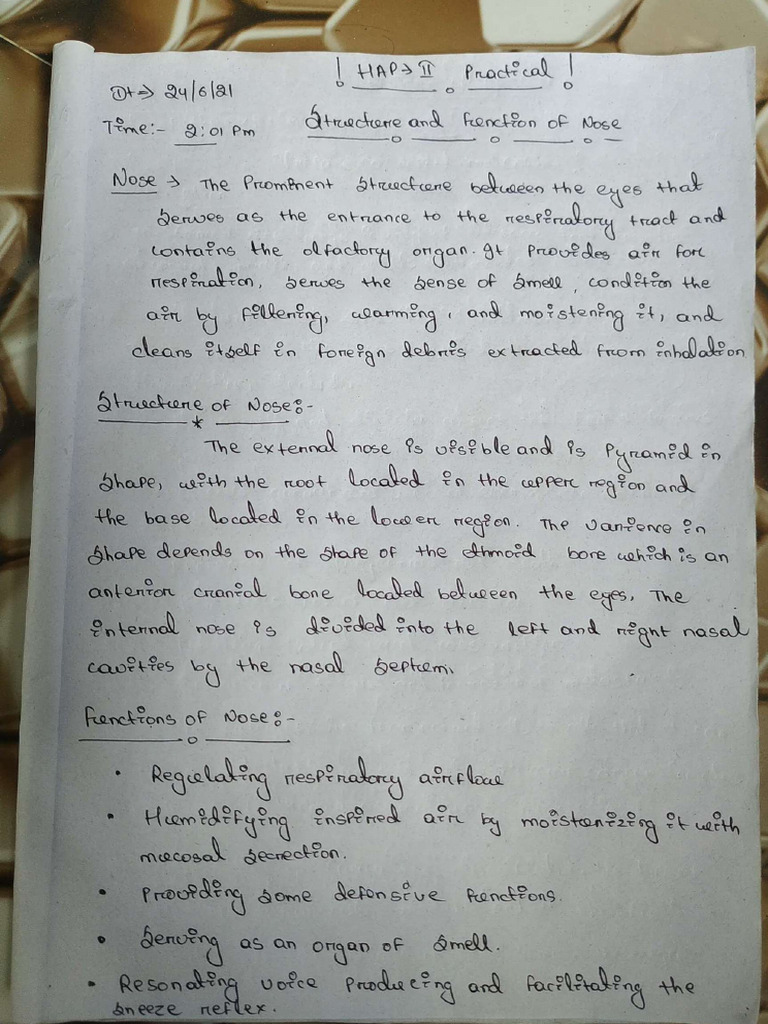 ! HAP → II Practical !
Dt → 24/6/21
Time:- 2:01 Pm
Structure and Function of Nose
Nose → The Prominent Structure between the eyes that
serves as the entrance to the respiratory tract and
contains the olfactory organ. It provides air for
respiration, serves the sense of smell, condition the
air by filtering, warming, and moistening it, and
cleans itself in foreign debris extracted from inhalation
Structure of Nose:-
The external nose is visible and is Pyramid in
shape, with the root located in the upper region and
the base located in the lower region. The varience in
shape depends on the shape of the ethmoid bore which is an
anterior cranial bone located between the eyes, The
internal nose is divided into the left and right nasal
cavities by the nasal septem.
Functions of Nose:-
• Regulating respiratory airflow
• Humidifying inspired air by moistenizing it with
mucosal secrection.
• Providing some defensive functions.
• Serving as an organ of smell.
• Resonating voice producing and facilitating the
sneeze reflex.